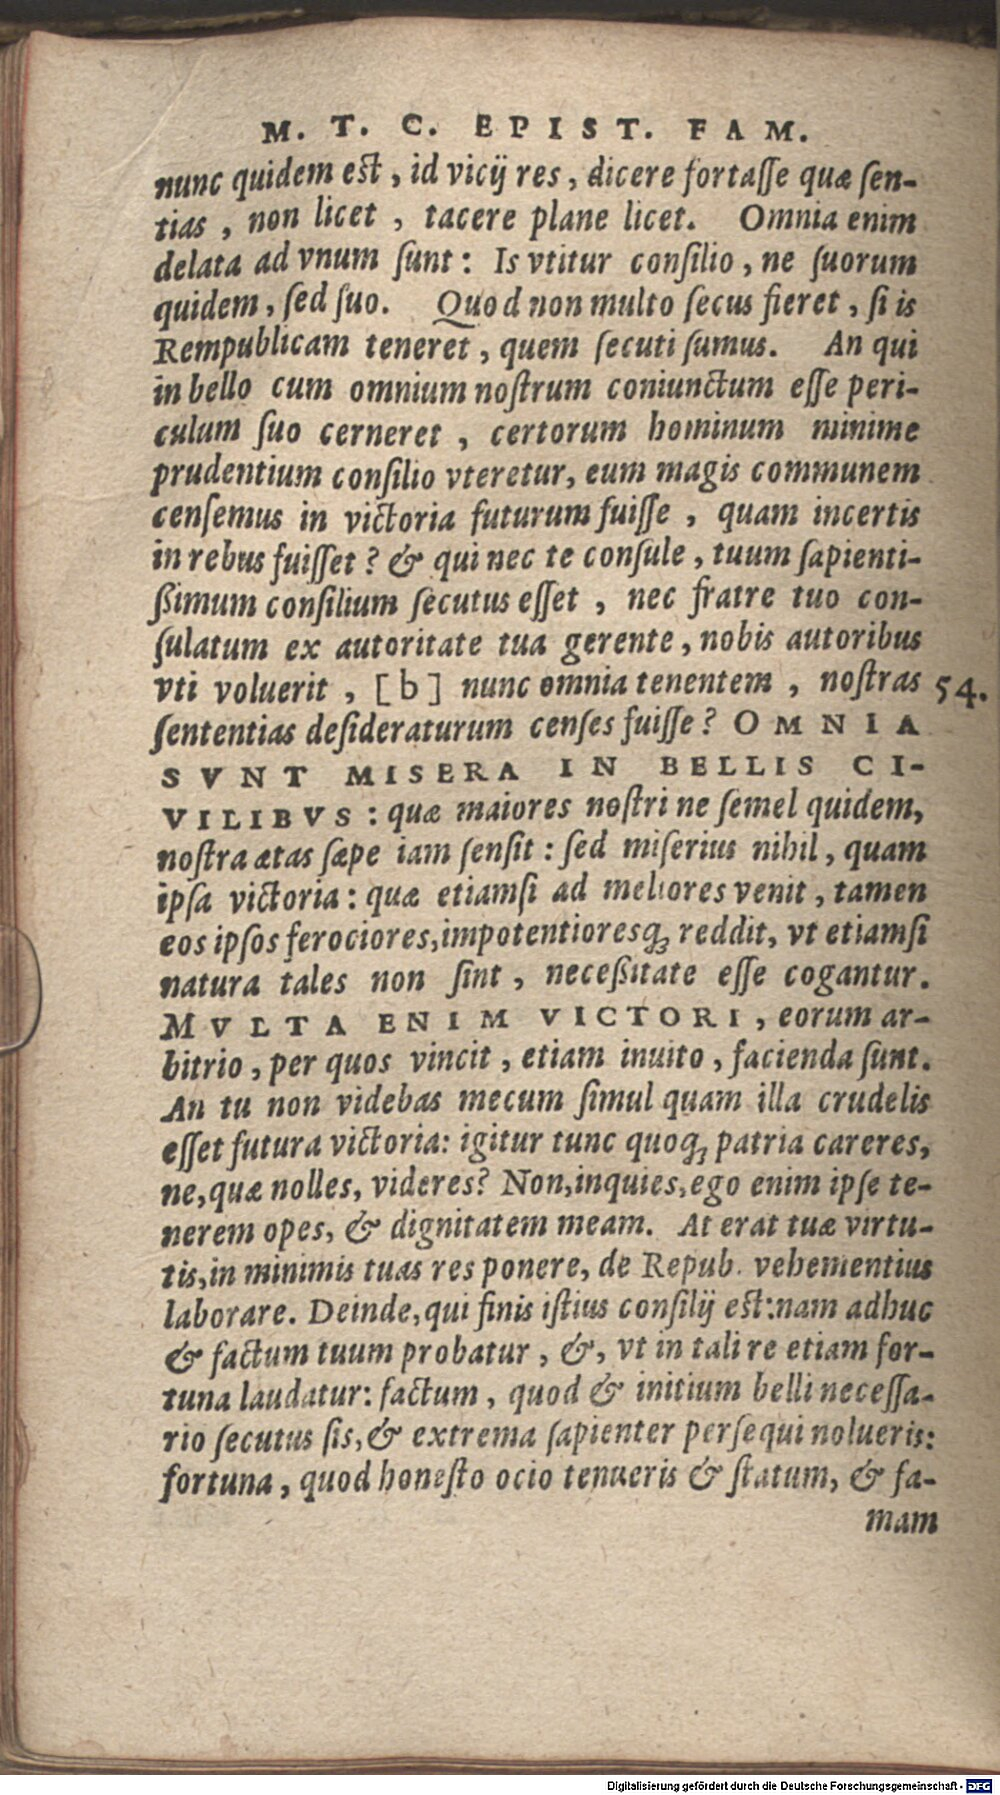 M. T. C. EPIST. FAM.
nunc quidem est, id vicij res, dicere fortasse quæ sen-
tias, non licet, tacere plane licet. Omnia enim
delata ad vnum sunt: Is vtitur consilio, ne suorum
quidem, sed suo. Quod non multo secus fieret, si is
Rempublicam teneret, quem secuti sumus. An qui
in bello cum omnium nostrum coniunctum esse peri-
culum suo cerneret, certorum hominum minime
prudentium consilio vteretur, eum magis communem
censemus in victoria futurum fuisse, quam incertis
in rebus fuisset? & qui nec te consule, tuum sapienti-
ßimum consilium secutus esset, nec fratre tuo con-
sulatum ex autoritate tua gerente, nobis autoribus
vti voluerit, [b] nunc omnia tenentem, nostras 54.
sententias desideraturum censes fuisse? OMNIA
SVNT MISERA IN BELLIS CI-
VILIBVS: quæ maiores nostri ne semel quidem,
nostra ætas sæpe iam sensit: sed miserius nihil, quam
ipsa victoria: quæ etiamsi ad meliores venit, tamen
eos ipsos ferociores, impotentioresq; reddit, vt etiamsi
natura tales non sint, neceßitate esse cogantur.
MVLTA ENIM VICTORI, eorum ar-
bitrio, per quos vincit, etiam inuito, facienda sunt.
An tu non videbas mecum simul quam illa crudelis
esset futura victoria: igitur tunc quoq; patria careres,
ne, quæ nolles, videres? Non, inquies, ego enim ipse te-
nerem opes, & dignitatem meam. At erat tuæ virtu-
tis, in minimis tuas res ponere, de Repub. vehementius
laborare. Deinde, qui finis istius consilij est: nam adhuc
& factum tuum probatur, &, vt in tali re etiam for-
tuna laudatur: factum, quod & initium belli necessa-
rio secutus sis, & extrema sapienter persequi nolueris:
fortuna, quod honesto ocio tenueris & statum, & fa-
mam
Digitalisierung gefördert durch die Deutsche Forschungsgemeinschaft - DFG